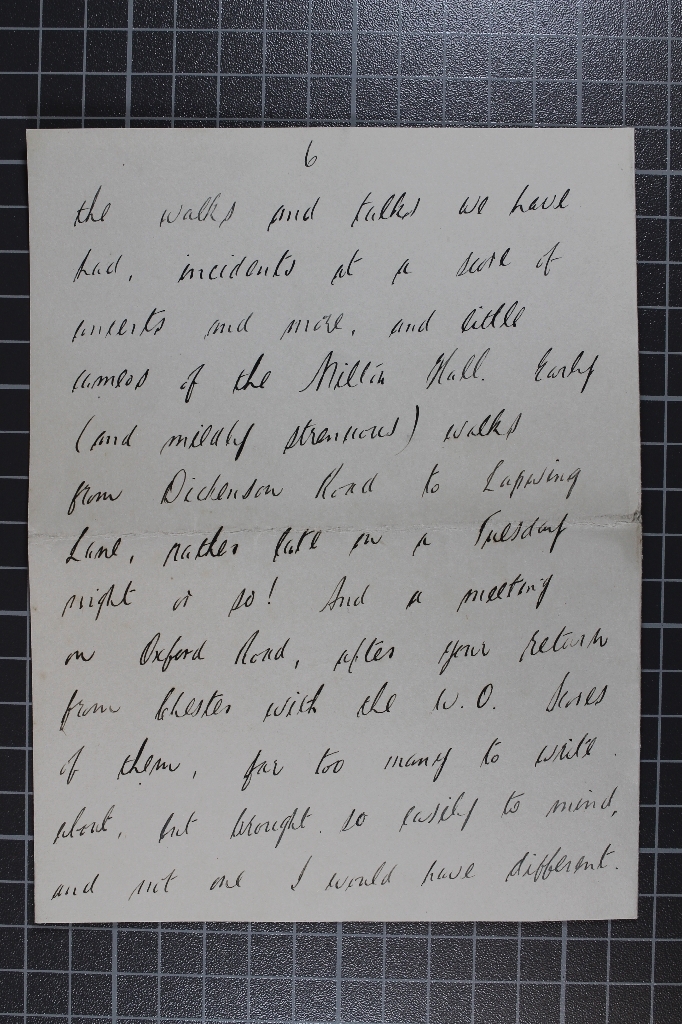 6
the walks and talks we have
had, incidents at a score of
concerts and more, and little
cameos of the Milton Hall. Early
(and mildly strenuous) walks
from Dickenson Road to Lapwing
Lane, rather late on a Tuesday
night or so! And a meeting
on Oxford Road, after your return
from Chester with the W.O. Scores
of them, far too many to write
about, but brought so easily to mind,
and not one I would have different.